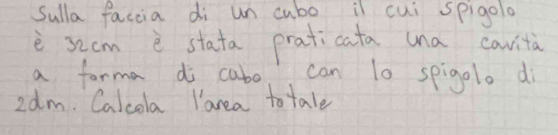 Sulla faccia di un cubo il cui spigolo
è 32cm è stata praticata una cavità
a forma di cubo can lo spigolo di
2dm. Calcola l'area totale